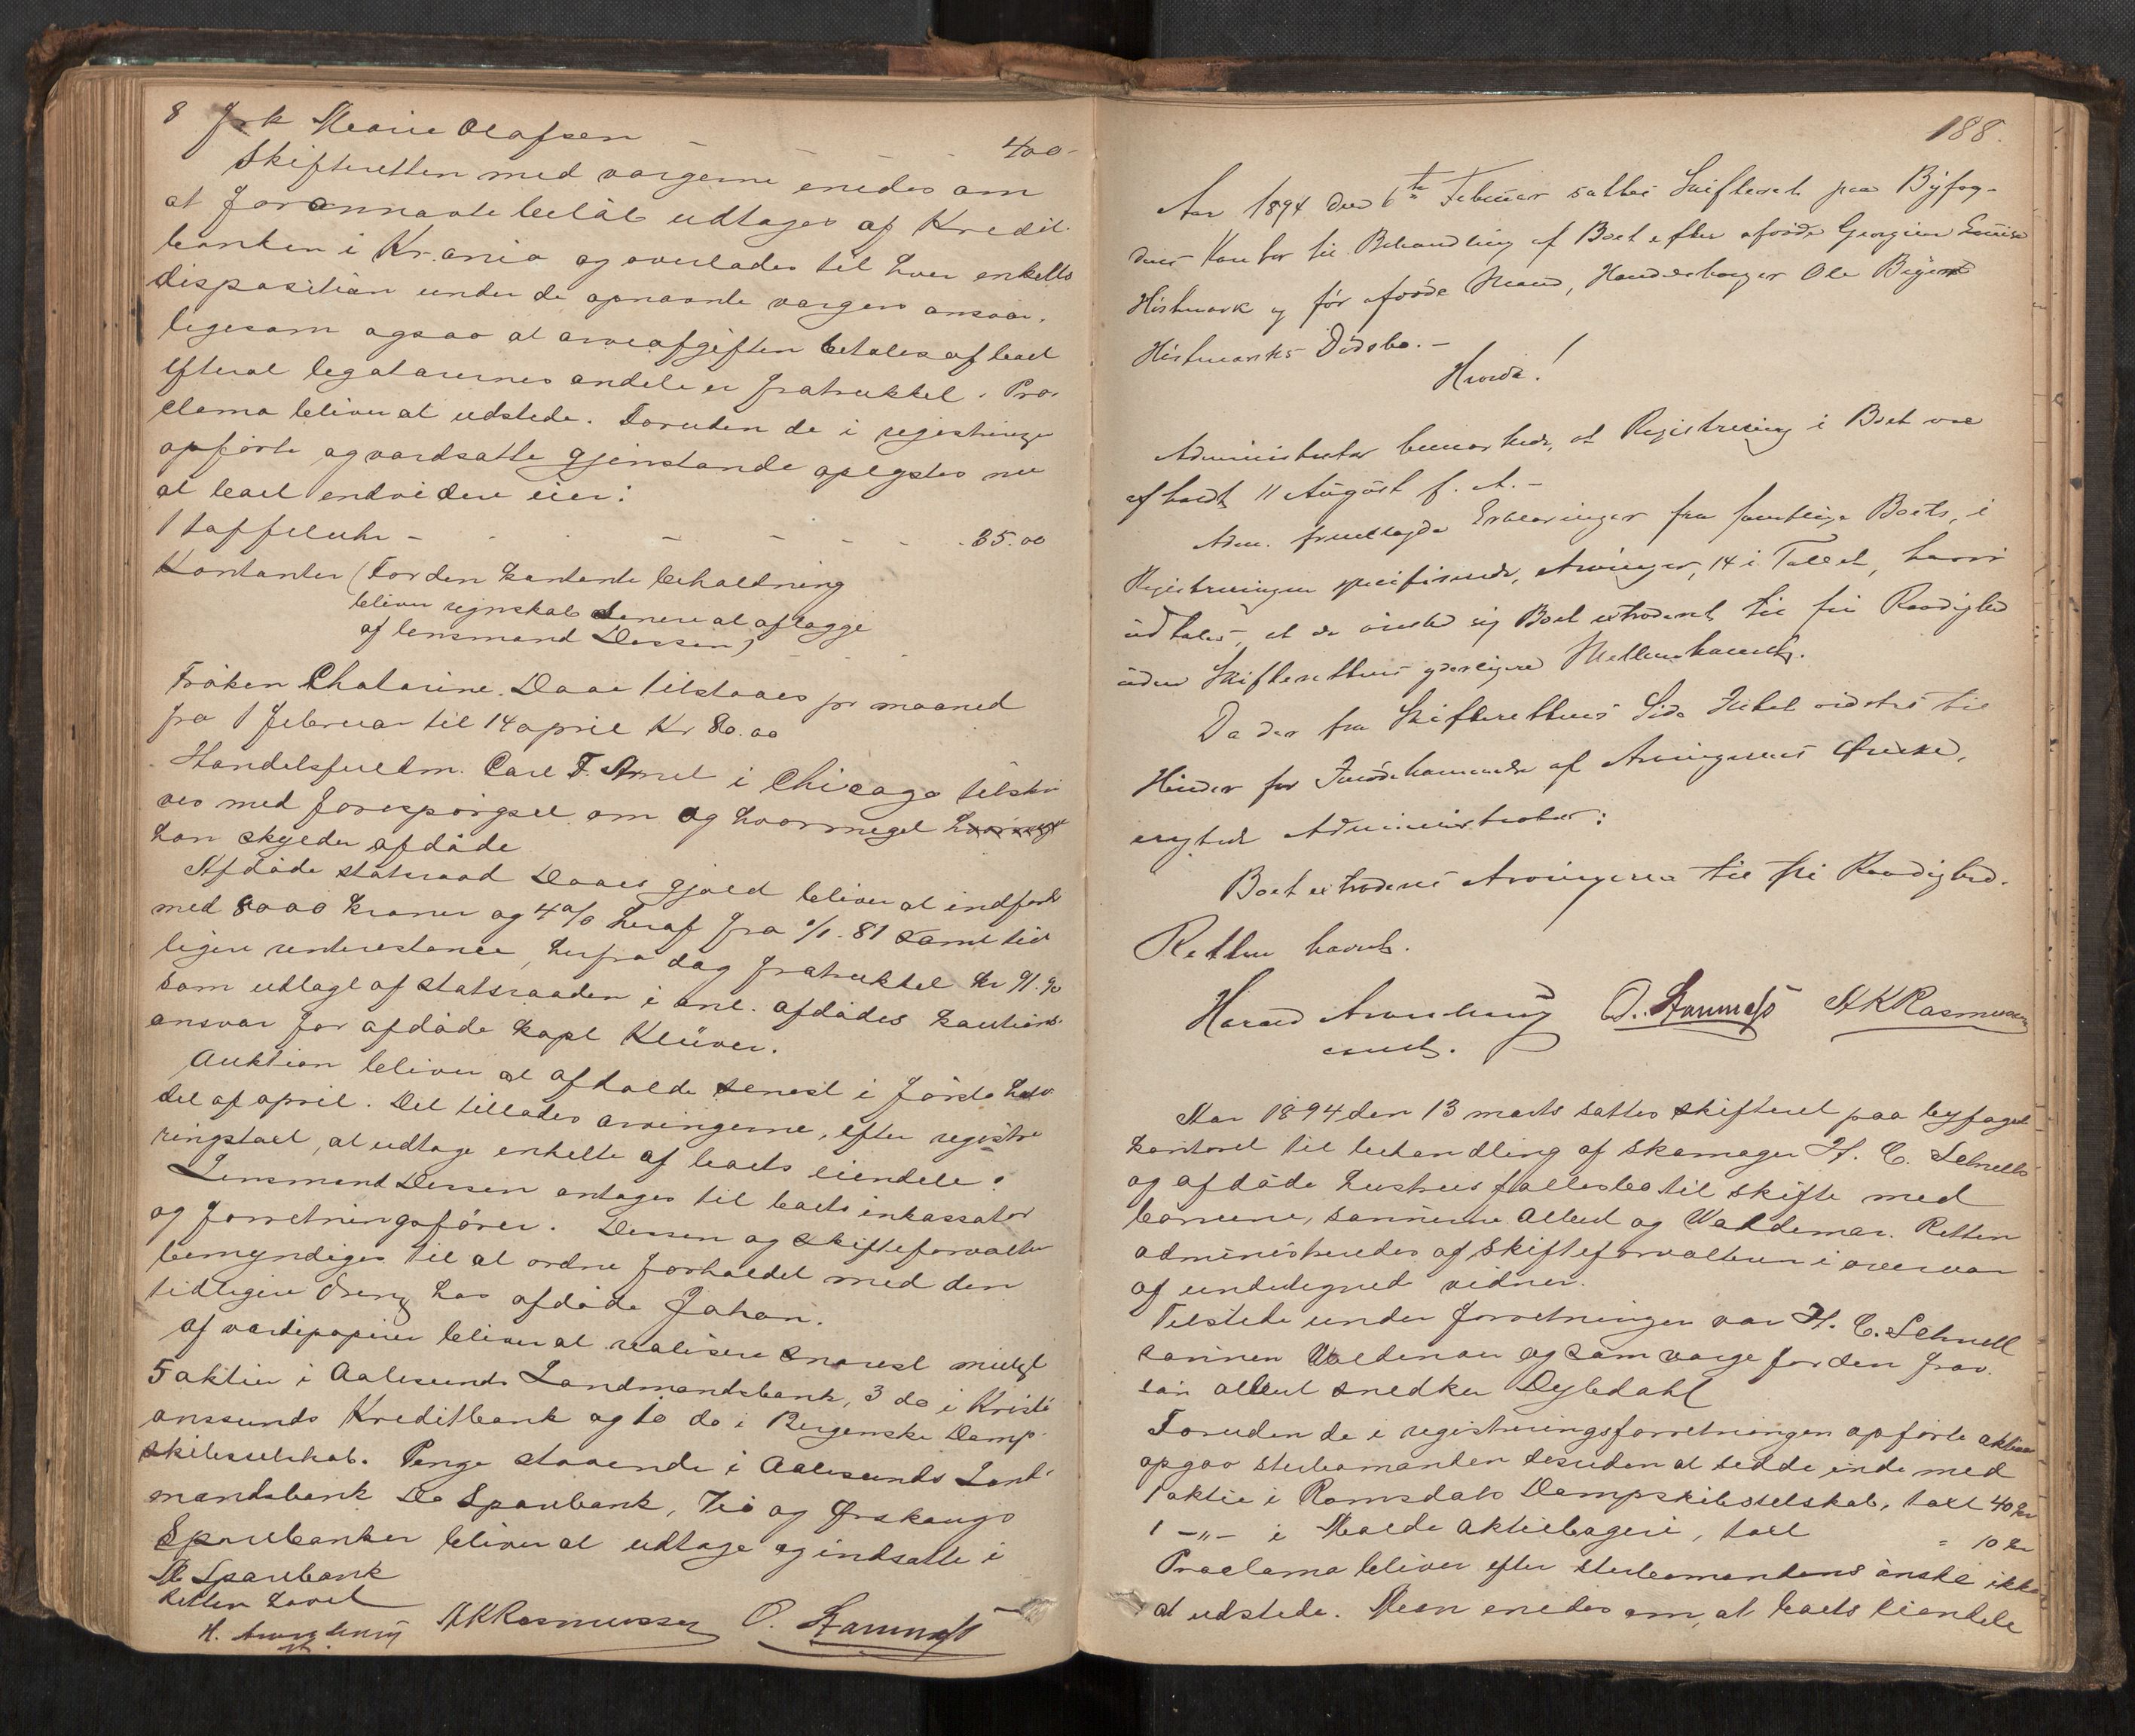 8 Frk Marie Olafsen - - - - 400-
Skifteretten med vargerne enedes om
at forannavnte beløb udtages af Kredit-
banken i Kr.ania og overlades til hver enkelts
disposition under de opnavnte vargers ansvar,
ligesom ogsaa at arveafgiften betales af boet
efterat legatarernes andele er fratrukket. Pro-
clama bliver at udstede. Foruden de i registringen
opførte og vardsatte gjenstande oplystes nu
at boet endvidere eier:
1 taffeluhr - - - - - - 35.00
Kontanter (For den kontante beholdning
bliver regnskab senere at aflægge
af lensmand Dessen)
Frøken Chatarine Daae tilstaaes pr maaned
fra 1 februar til 14 april Kr 80.00
Handelsfuldm. Carl F. i Chicago tilskri-
ves med forespørgsel om og hvormeget
han skylder afdøde
Afdøde statsraad Daaes gjæld bliver at indfordre
med 8000 kroner og 4% heraf fra 1/1-81 samt tid-
ligere renterestance, herfra dog fratrukket Kr 91.90
som udlagt af statsraaden i anl. afdødes kautions-
ansvar for afdøde kapt Klüver.
Auktion bliver at afholde senest i første halv-
del af april. Det tillades arvingerne, efter registre-
ringstaxt, at udtage enkelte af boets eiendele.
Lensmand Dessen antages til boets inkassator
og forretningsfører. Dessen og skifteforvalter
bemyndiges til at ordne forholdet med den
tidligere dreng hos afdøde Johan.
Af værdipapirer bliver at realisere snarest muligt
5 aktier i Aalesunds Landmandsbank, 3 do i Kristi-
anssunds Kreditbank og 10 do i Bergenske Damp-
skibsselskab. Penge staaende i Aalesunds Land-
mandsbank Do Sparebank, og Ørskougs
Sparebanker bliver at udtage og indsætte i
M Sparebank
Retten hævet
H. AKRasmussen O. Stamnæs
188.
Aar 1894 den 6te Februar sattes Skifteret paa Byfog-
dens Kontor til Behandling af Boet efter afdøde Georgine Louise
og før afdøde Mand, Handelsborger Ole
Dødsbo. -
Hvorda!
Administrator bemærkede, at Registrering i Boet var
afholdt 11 August f. A. -
Adm. fremlagde Erklæringer fra samtlige Boets, i
Registreringen specificerede, Arvinger, 14 i Tallet, hvori
udtales, at de ønsker sig Boet extraderet til fri Raadighed
uden Skifterettens yderligere Mellemkomst.
Da der fra Skifterettens Side Intet vidstes til
Hinder for Imødekommende af Arvingernes Ønske,
Administrator:
Boet extraderes Arvingerne til fri Raadighed.
Retten hævet.
Harald O. Stamnæs AKRasmussen
const.
Aar 1894 den 13 marts sattes skifteret paa byfoged-
kontoret til behandling af skomager H. C. Schnells
og afdøde hustrus fællesbo til skifte med
børnene, sønnerne Albert og Waldemar. Retten
administreredes af skifteforvalteren i overvær
af undertegnede vidner.
Tilstede under forretningen var H. C. Schnell
sønnen Waldemar og som varge for den fra-
søn Albert snedker Dyledahl
Foruden de i registreringsforretningen opførte aktiver
opgav sterbomanden desuden at sidde inde med
1 aktie i Romsdals Dampskibsselskab, taxt 40 kr
1 -"- i Molde aktiebageri, taxt = 10 kr
Proclama bliver efter sterbomandens ønske ikke
at udstede. Man enedes om, at boets eiendele